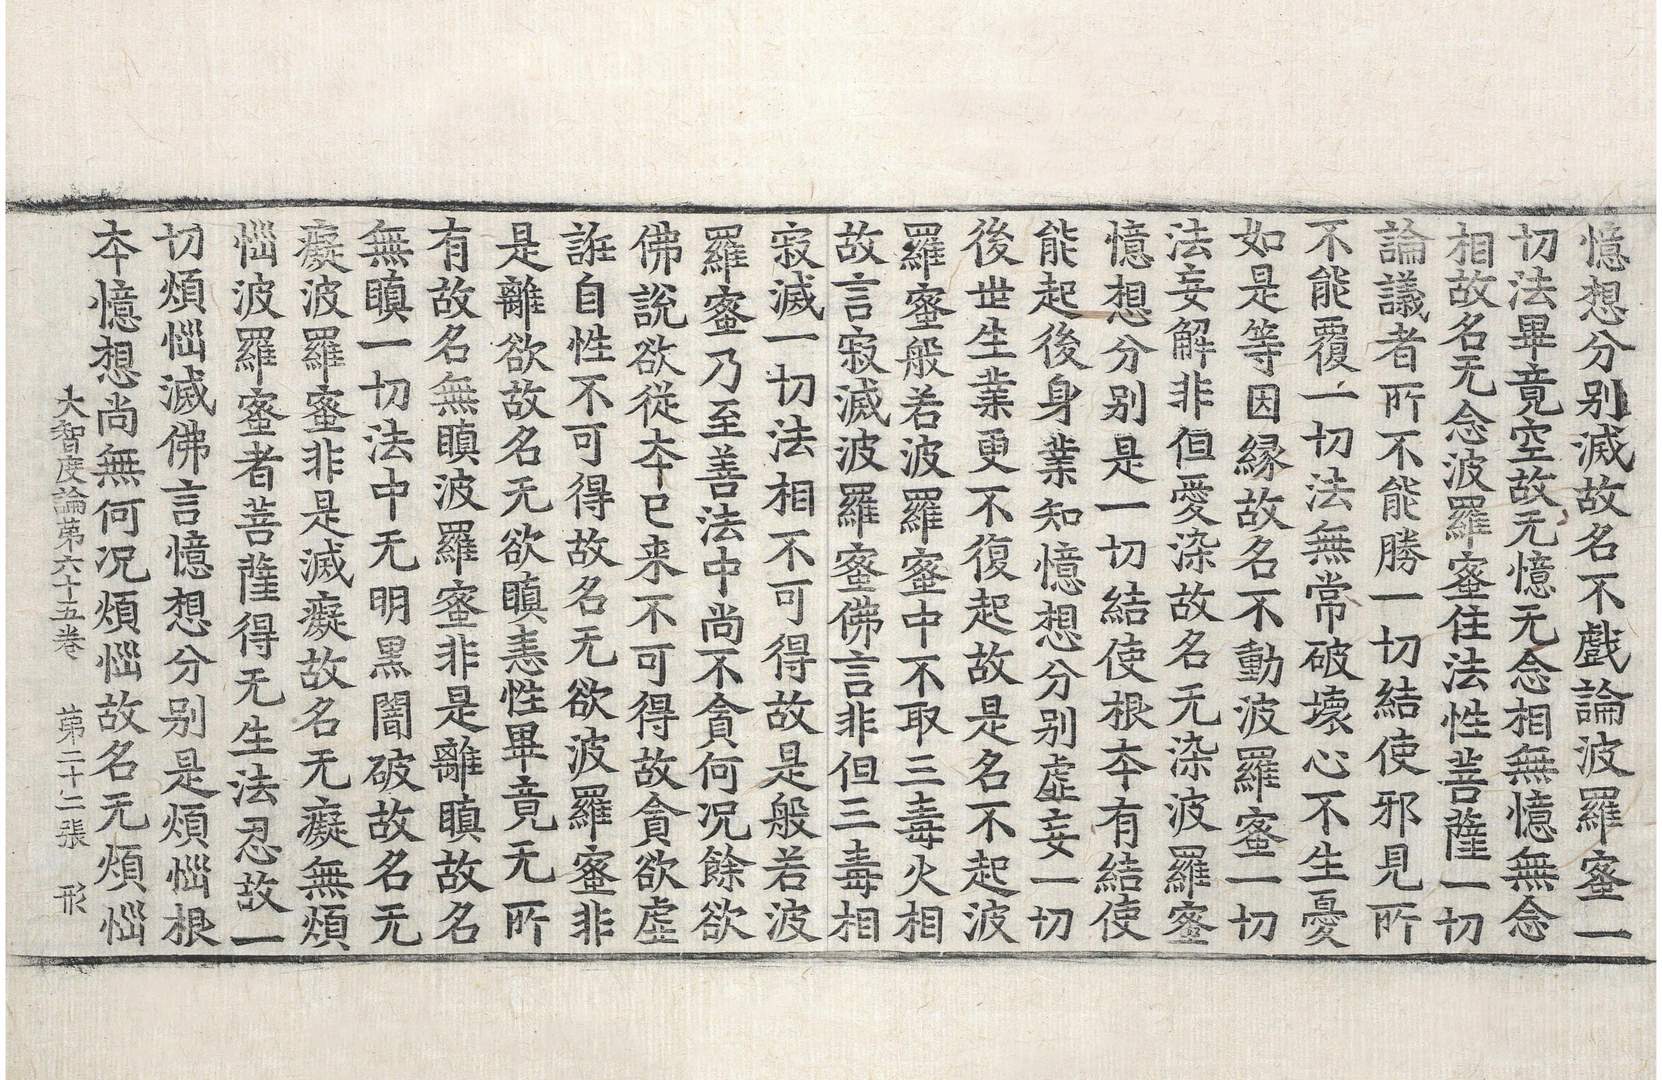 憶想分別滅故名不戲論波羅蜜一
切法畢竟空故无憶无念相無憶無念
相故名无念波羅蜜住法性菩薩一切
論議者所不能勝一切結使邪見所
不能覆一切法無常破壞心不生憂
如是等因緣故名不動波羅蜜一切
法妄解非但愛染故名无染波羅蜜
憶想分別是一切結使根本有結使
能起後身業知憶想分別虛妄一切
後世生業更不復起故是名不起波
羅蜜般若波羅蜜中不取三毒火相
故言寂滅波羅蜜佛言非但三毒相
寂滅一切法相不可得故是般若波
羅蜜乃至善法中尚不貪何况餘欲
佛說欲從本已来不可得故貪欲虛
誑自性不可得故名无欲波羅蜜非
是離欲故名无欲瞋恚性畢竟无所
有故名無瞋波羅蜜非是離瞋故名
無瞋一切法中无明黑闇破故名无
癡波羅蜜非是滅癡故名无癡無煩
惱波羅蜜者菩薩得无生法忍故一
切煩惱滅佛言憶想分別是煩惱根
本憶想尚無何况煩惱故名无煩惱
大智度論第六十五卷 第二十二張 形